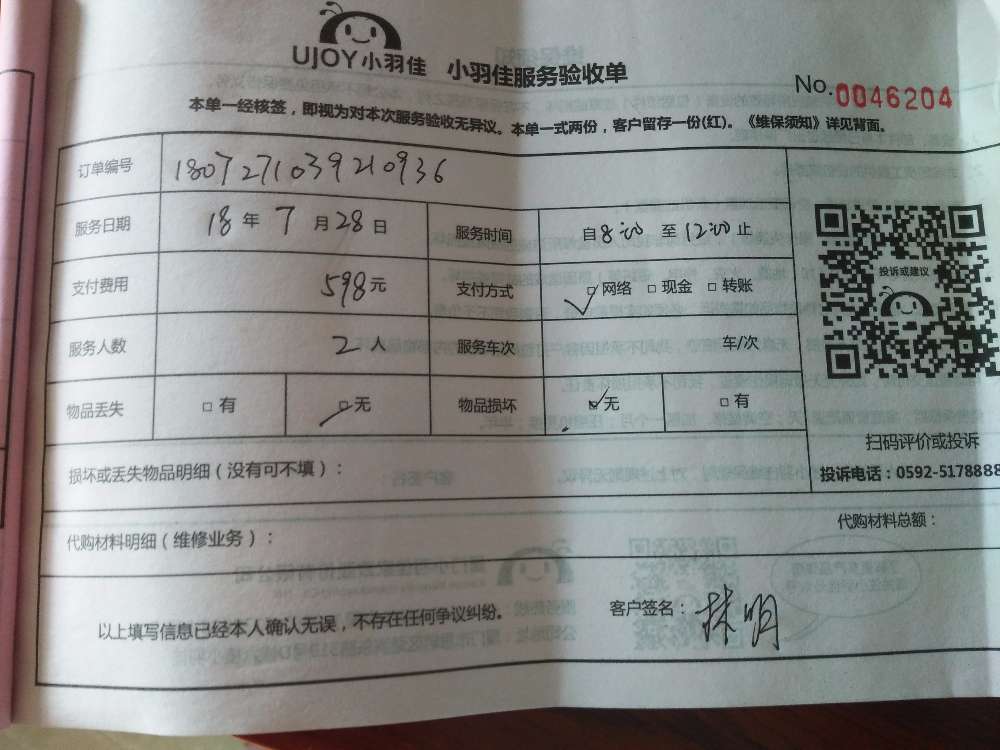 UJOY小羽佳 小羽佳服务验收单
No.0046204
本单一经核签，即视为对本次服务验收无异议。本单一式两份，客户留存一份(红)。《维保须知》详见背面。
订单编号 180727103921 0936
服务日期 18年7月28日 服务时间 自8:00至12:00止
投诉或建议
支付费用 598元 支付方式 ☑网络 □现金 □转账
服务人数 2人 服务车次 车/次
物品丢失 □有 ☑无 物品损坏 ☑无 □有
扫码评价或投诉
损坏或丢失物品明细（没有可不填）：
投诉电话：0592-5178888
代购材料明细（维修业务）：
代购材料总额：
以上填写信息已经本人确认无误，不存在任何争议纠纷。
客户签名：林明